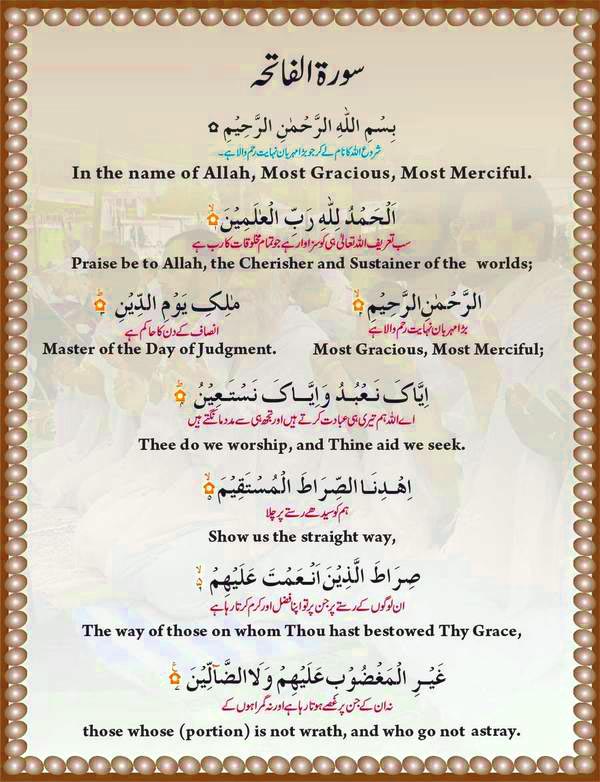 سورة الفاتحہ
بِسْمِ اللّٰهِ الرَّحْمٰنِ الرَّحِيْمِ ۝
شروع اللہ کا نام لے کر جو بڑا مہربان نہایت رحم والا ہے۔
In the name of Allah, Most Gracious, Most Merciful.
اَلْحَمْدُ لِلّٰهِ رَبِّ الْعٰلَمِيْنَ ۙ
سب تعریف اللہ تعالیٰ ہی کو سزاوار ہے جو تمام مخلوقات کا رب ہے
Praise be to Allah, the Cherisher and Sustainer of the worlds;
الرَّحْمٰنِ الرَّحِيْمِ ۙ
بڑا مہربان نہایت رحم والا ہے
Most Gracious, Most Merciful;
مٰلِكِ يَوْمِ الدِّيْنِ ۗ
انصاف کے دن کا حاکم ہے
Master of the Day of Judgment.
اِيَّاکَ نَعْبُدُ وَاِيَّاکَ نَسْتَعِيْنُ ۗ
اے اللہ ہم تیری ہی عبادت کرتے ہیں اور تجھ ہی سے مدد مانگتے ہیں
Thee do we worship, and Thine aid we seek.
اِهْدِنَا الصِّرَاطَ الْمُسْتَقِيْمَ ۙ
ہم کو سیدھے رستے پر چلا
Show us the straight way,
صِرَاطَ الَّذِيْنَ اَنْعَمْتَ عَلَيْهِمْ ۙ
ان لوگوں کے رستے پر جن پر تو اپنا فضل اور کرم کرتا رہا ہے
The way of those on whom Thou hast bestowed Thy Grace,
غَيْرِ الْمَغْضُوْبِ عَلَيْهِمْ وَلَا الضَّآلِّيْنَ
نہ ان کے جن پر غصے ہوتا رہا ہے اور نہ گمراہوں کے
those whose (portion) is not wrath, and who go not astray.